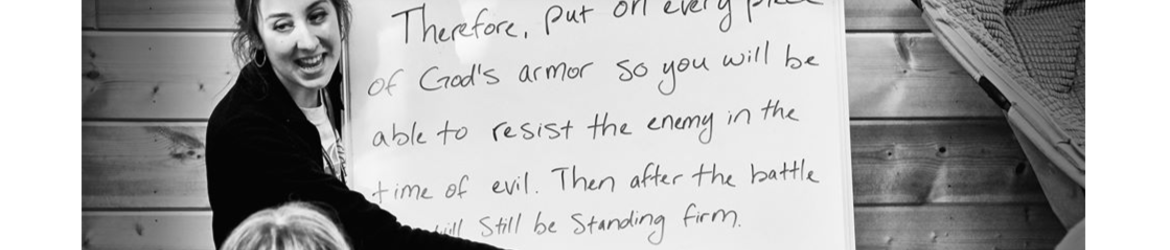 Therefore, put on every piece
of God's armor so you will be
able to resist the enemy in the
time of evil. Then after the battle
will Still be Standing firm.